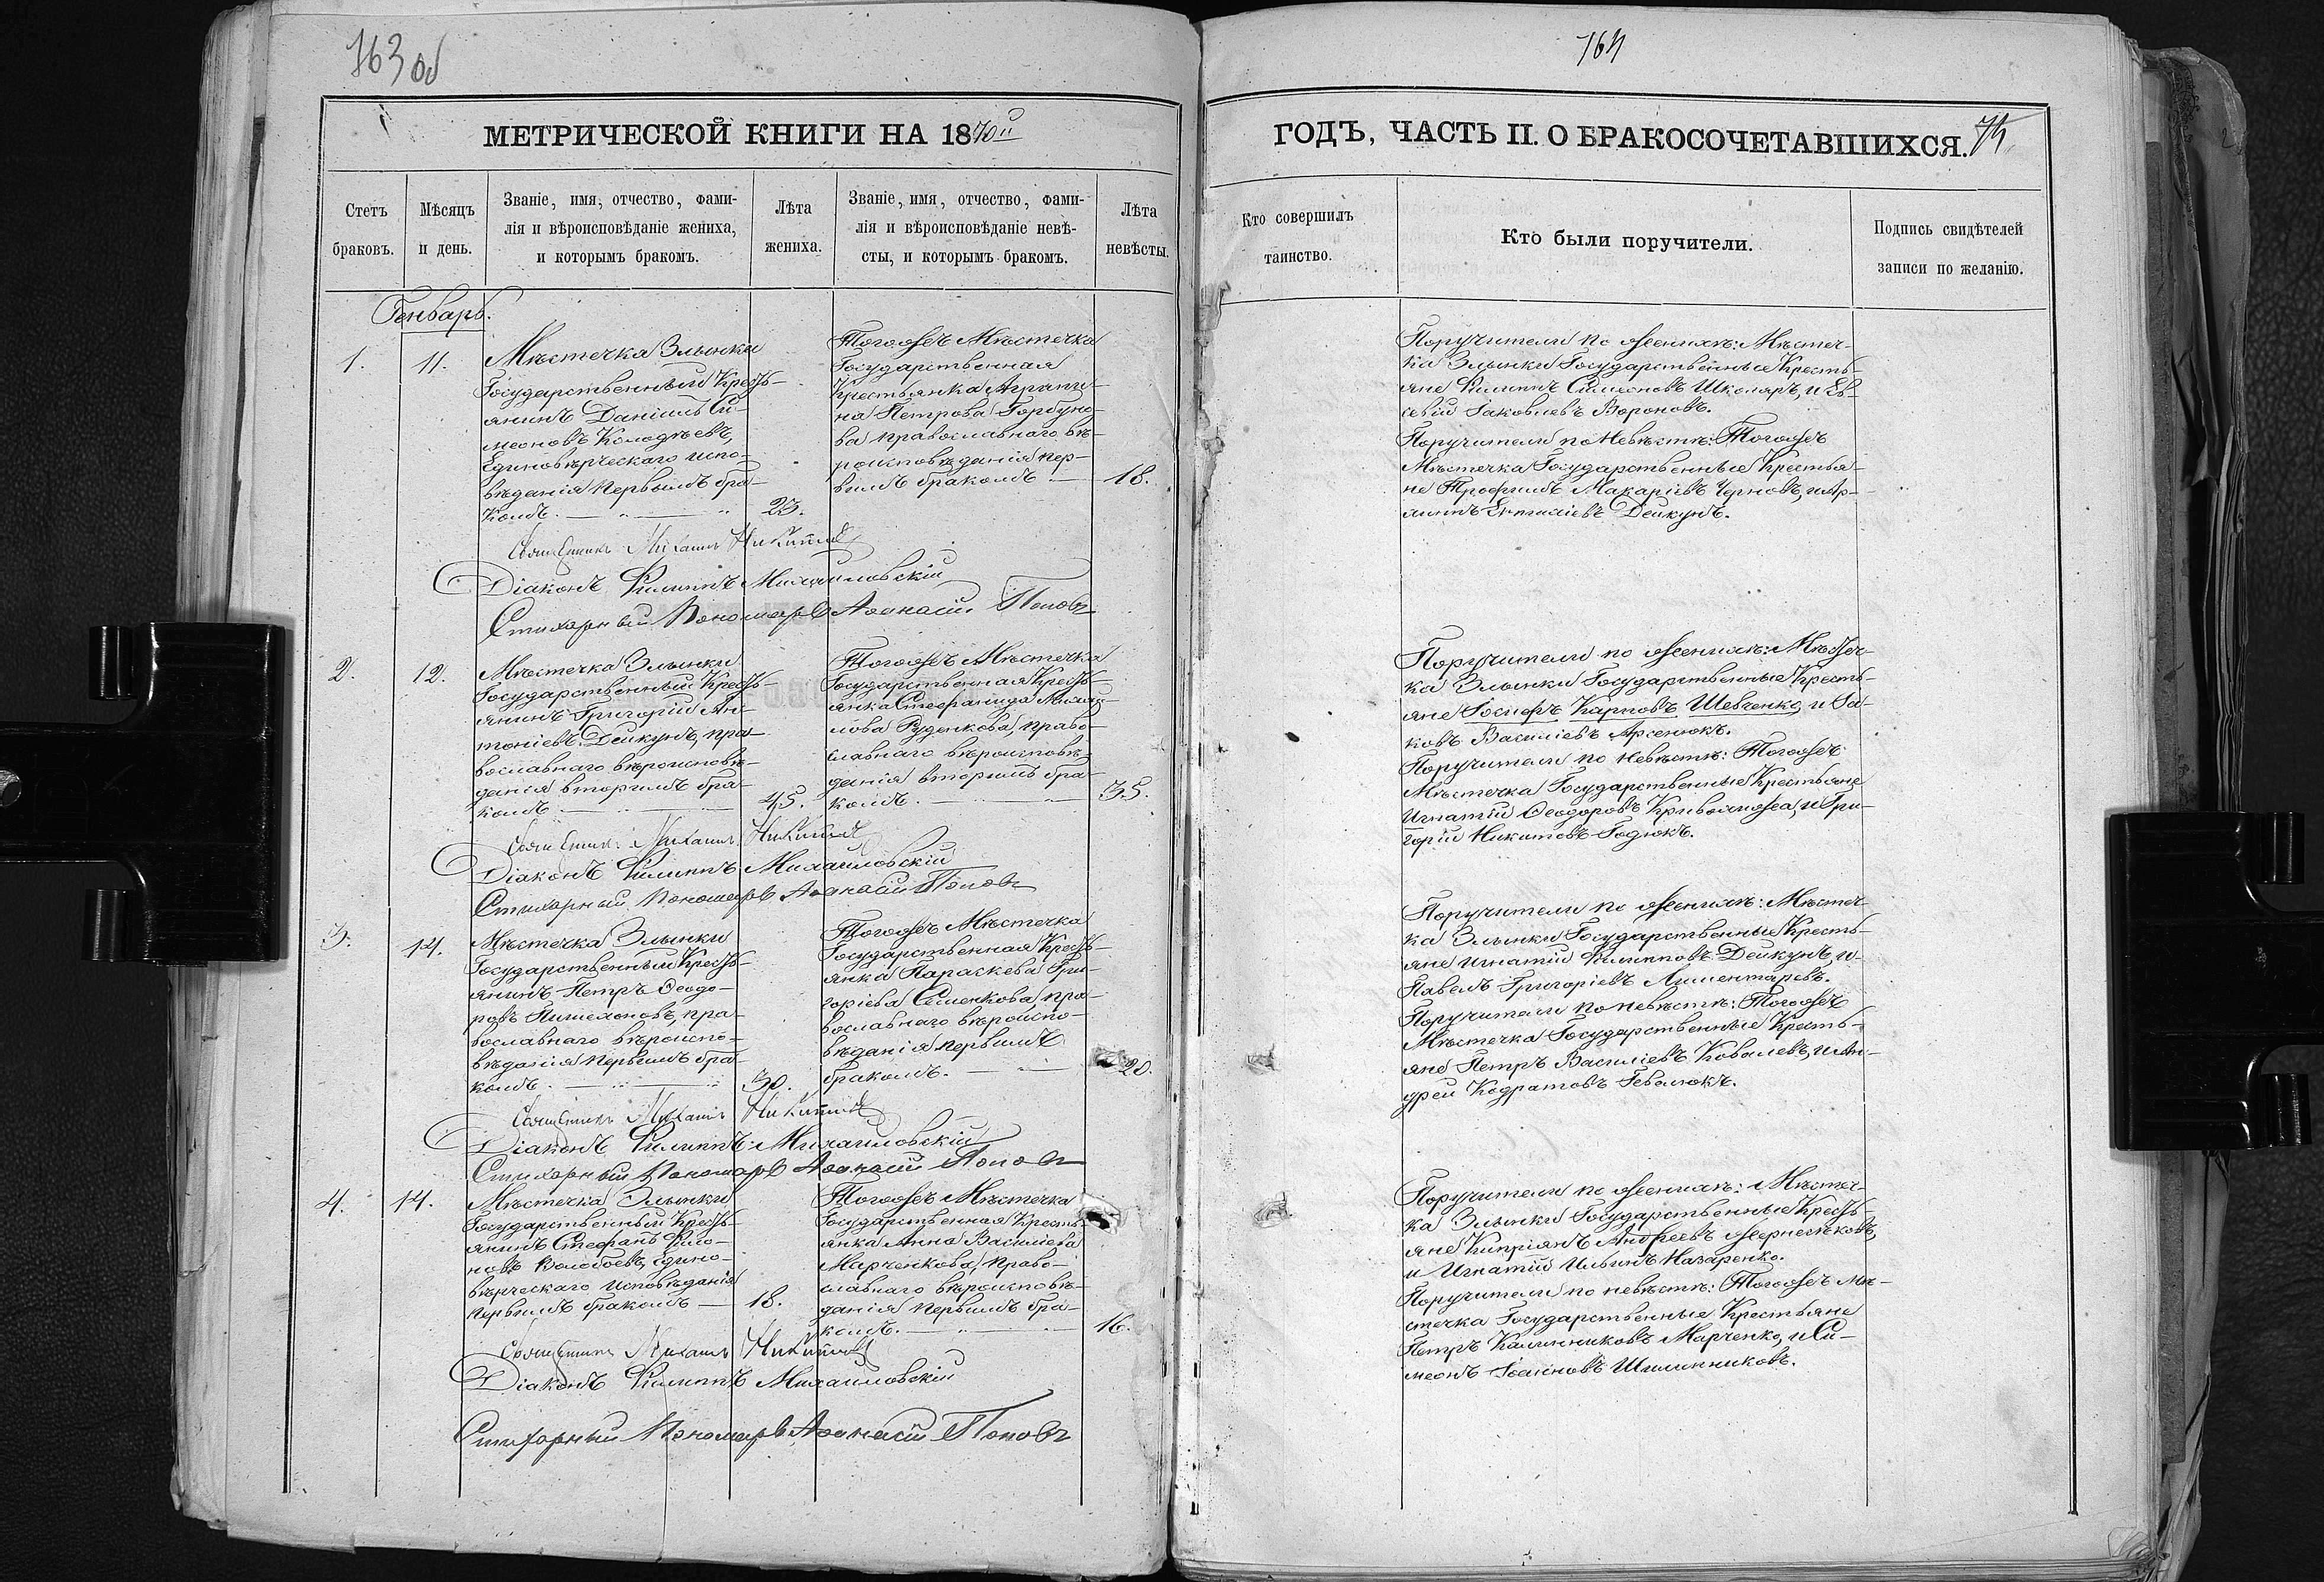 763 об
МЕТРИЧЕСКОЙ КНИГИ НА 1870й
Счетъ браковъ.
Мѣсяцъ и день.
Званіе, имя, отчество, фами-
лія и вѣроисповѣданіе жениха,
и которымъ бракомъ.
Лѣта жениха.
Званіе, имя, отчество, фами-
лія и вѣроисповѣданіе невѣ-
сты, и которымъ бракомъ.
Лѣта невѣсты.
Генварь.
1.
11.
Мѣстечка Злынки
Государственный Кресть-
янинъ Даніилъ Си-
меоновъ Колодѣевъ,
Единовѣрческаго испо-
вѣданія первымъ бра-
комъ.
23.
Тогожъ Мѣстечка
Государственная
Крестьянка Агрипи-
на Петрова Горбуно-
ва православнаго вѣ-
роисповѣданія пер-
вымъ бракомъ
18.
Священникъ Михаилъ Никитинъ
Діаконъ Филиппъ Михайловскій
Стихарный Пономарь Аѳанасій Поповъ
2.
12.
Мѣстечка Злынки
Государственный Кресть-
янинъ Григорій Ан-
тоніевъ Дейкунъ, пра-
вославнаго вѣроисповѣ-
данія вторымъ бра-
комъ.
45.
Тогожъ Мѣстечка
Государственная Кресть-
янка Стефанида Михай-
лова Руденкова, право-
славнаго вѣроисповѣ-
данія вторымъ бра-
комъ.
35.
Священникъ Михаилъ Никитинъ
Діаконъ Филиппъ Михайловскій
Стихарный Пономарь Аѳанасій Поповъ
3.
14.
Мѣстечка Злынки
Государственный Кресть-
янинъ Петръ Ѳеодо-
ровъ пра-
вославнаго вѣроиспо-
вѣданія первымъ бра-
комъ.
30.
Тогожъ Мѣстечка
Государственная Кресть-
янка Параскева Гри-
горіева Семенкова, пра-
вославнаго вѣроиспо-
вѣданія первымъ
бракомъ.
20.
Священникъ Михаилъ Никитинъ
Діаконъ Филиппъ Михайловскій
Стихарный Пономарь Аѳанасій Поповъ
4.
14.
Мѣстечка Злынки
Государственный Кресть-
янинъ Стефанъ Фило-
новъ Волобоевъ, Едино-
вѣрческаго исповѣданія
первымъ бракомъ
18.
Тогожъ Мѣстечка
Государственная Кресть-
янка Анна Василіева
Марченкова, право-
славнаго вѣроисповѣ-
данія первымъ бра-
комъ.
16.
Священникъ Михаилъ Никитинъ
Діаконъ Филиппъ Михайловскій
Стихарный Пономарь Аѳанасій Поповъ
764
ГОДЪ, ЧАСТЬ II. О БРАКОСОЧЕТАВШИХСЯ.
74
Кто совершилъ таинство.
Кто были поручители.
Подпись свидѣтелей
записи по желанію.
Поручители по женихѣ: Мѣстеч-
ка Злынки Государственные Кресть-
яне Филиппъ Симеоновъ Школяръ, и Ев-
севій Іаковлевъ Вороновъ.
Поручители по Невѣстѣ: Тогожъ
Мѣстечка Государственные Крестья-
не Трофимъ Макаріевъ Черновъ, и
Дейкунъ.
Поручители по женихѣ: Мѣстеч-
ка Злынки Государственные Кресть-
яне Іосифъ Карповъ Шевченко, и Іа-
ковъ Василіевъ Арсенюкъ.
Поручители по невѣстѣ: Тогожъ
Мѣстечка Государственные Крестьяне
Игнатій Ѳеодоровъ Кривошея, и Гри-
горій Никитовъ Годюкъ.
Поручители по женихѣ: Мѣстеч-
ка Злынки Государственные Кресть-
яне Игнатій Филипповъ Дейкунъ, и
Павелъ Григоріевъ Лиментаревъ.
Поручители по невѣстѣ: Тогожъ
Мѣстечка Государственные Кресть-
яне Петръ Василіевъ Ковалевъ, и Ан-
дрей Кодратовъ Гевалюкъ.
Поручители по женихѣ: Мѣстеч-
ка Злынки Государственные Кресть-
яне Кипріянъ Андреевъ Жерноклѣковъ,
и Игнатій Ильинъ Назаренко.
Поручители по невѣстѣ: Тогожъ Мѣ-
стечка Государственные Крестьяне
Петръ Калинниковъ Марченко, и Си-
меонъ Іоанновъ Шилинниковъ.